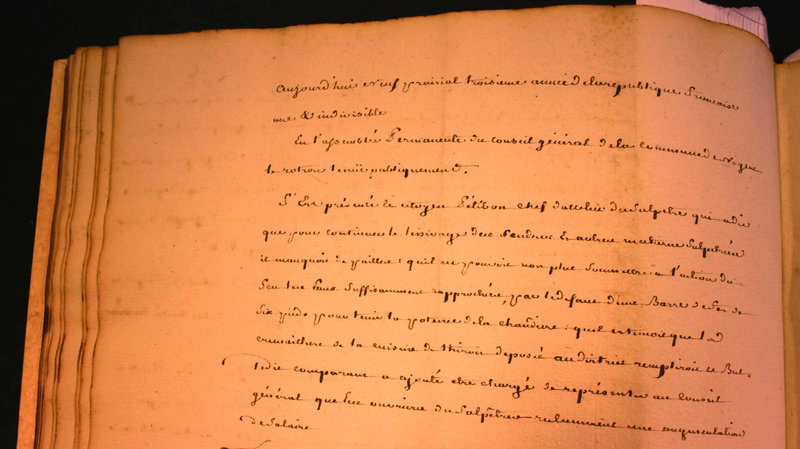 aujourd'hui neuf prairial troisieme année de la republique francaise
une & indivisible
En l'assemblée Permanente du Conseil général de la Commune de Nogent
le rotrou tenüe publiquement.
S'Est présenté le citoyen Pélibon chef d'attelier du Salpêtre qui a dit
que pour continuer le lessivage des Cendres Et autres matieres Salpetrées
il manquoit de pailles : qu'il ne pouvoit non plus Soumettre a l'action du
feu les Eaux Suffisamment rapprochées, par le defaut d'une Barre de fer de
Six pieds pour tenir la potence de la chaudiere : qu'il estimoit que la
cremaillere de la cuisine de thiron deposée au district rempliroit le But,
ledit comparant a ajouté etre chargé de représenter au Conseil
général que les ouvriers du Salpêtre reclament une augmentation
de Salaire